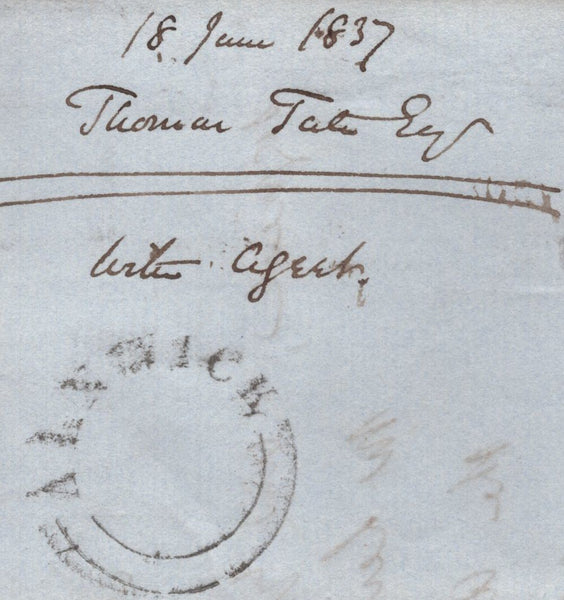 18 June 1837
Thomas Tate Esqr
Agent
ALNWICK